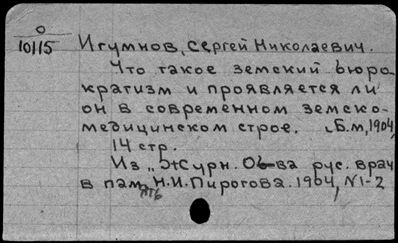 0
10115
Игумнов, Сергей Николаевич.
Что такое земский бюро-
кратизм и проявляется ли
он в современном земско-
медицинском строе. Б.м, 1904,
14 стр.
Из "Журн. Об-ва рус. врач
в пам. Н.И. Пирогова. 1904, N1-2
ять